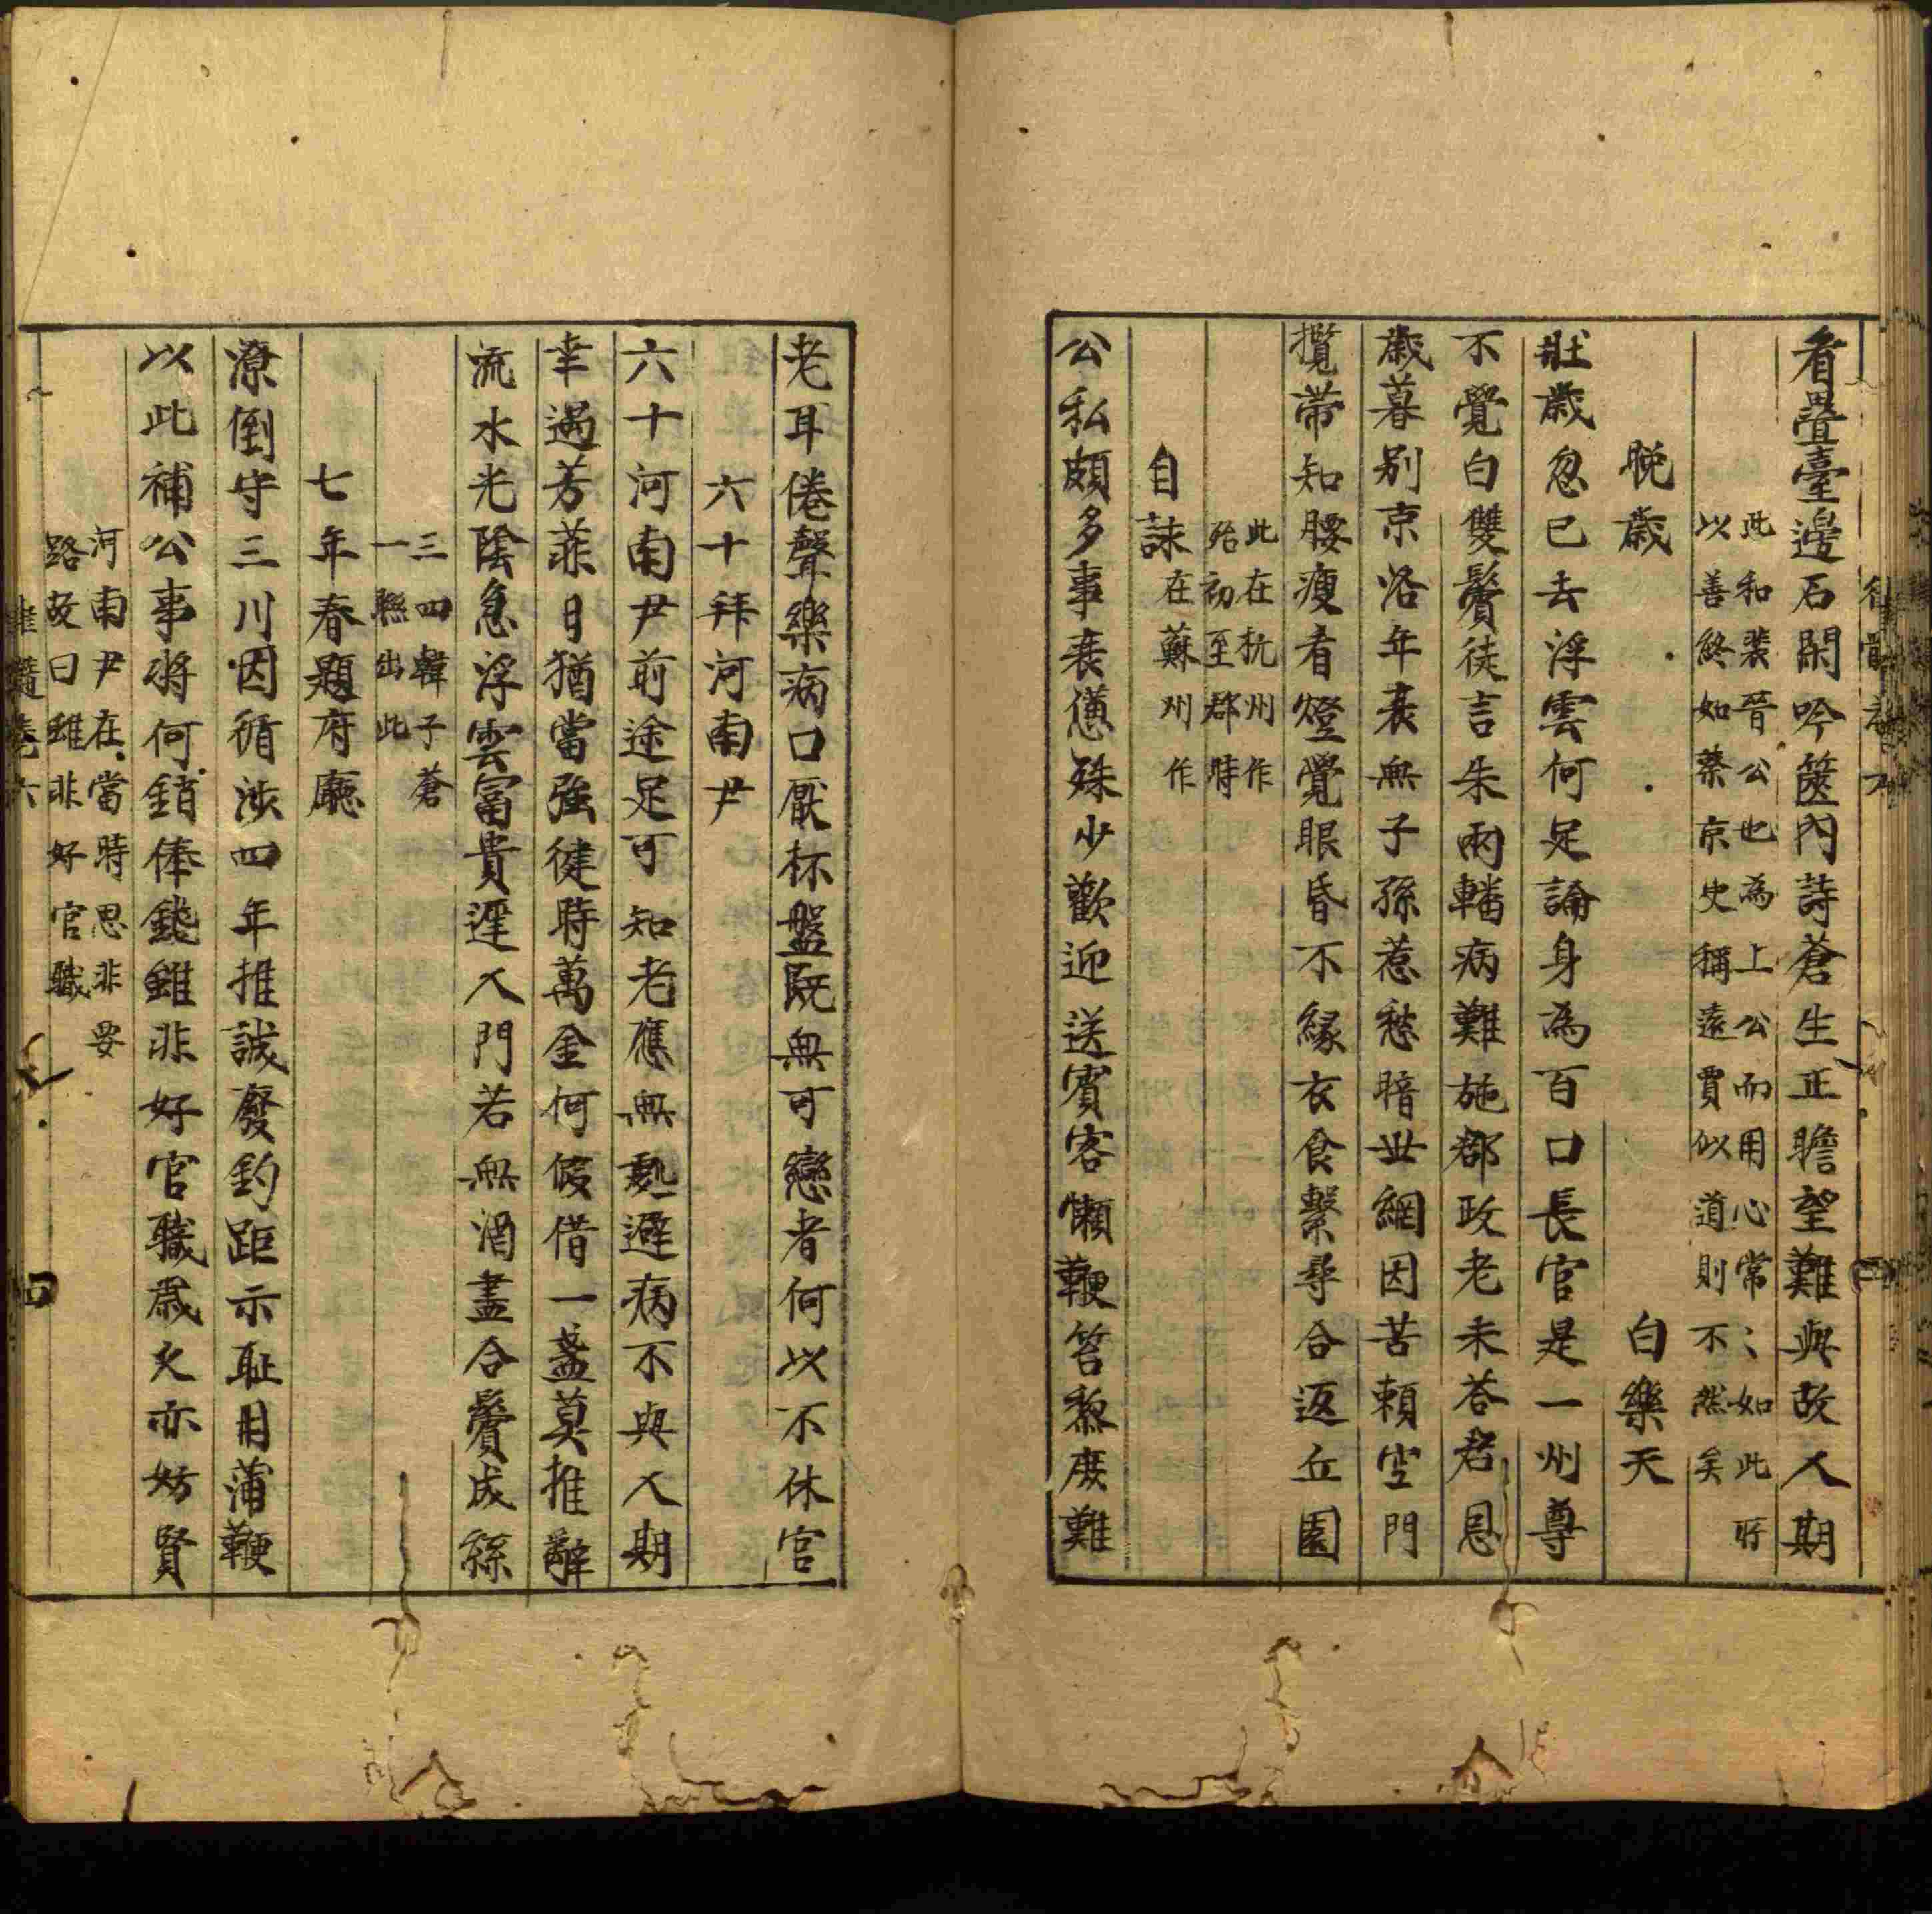 看疊臺邊石閑吟篋內詩蒼生正瞻望難與故人期
此和裴晉公也為上公而用心常〻如此所
以善終如蔡京史稱遠賈似道則不然矣
晚歲 白樂天
壯歲忽已去浮雲何足論身為百口長官是一州尊
不覺白雙鬢徒言朱兩轓病難施郡政老未荅君恩
歲暮別京洛年衰無子孫惹愁暗世網因苦賴空門
攬帶知腰瘦看燈覺眼昏不緣衣食繫尋合返丘園
此在杭州作
殆初至郡時
自詠在蘇州作
公私頗多事衰憊殊少歡迎送賓客懶鞭笞黎庶難
老耳倦聲樂病口厭杯盤既無可戀者何以不休官
六十拜河南尹
六十河南尹前途足可知老應無處避病不與人期
幸遇芳菲日猶當強健時萬金何假借一盞莫推辭
流水光陰急浮雲富貴遲人門若無酒盡合鬢成絲
三四韓子蒼
一聯出此
七年春題府廳
潦倒守三川因循涉四年推誠廢鈎距示恥用蒲鞭
以此補公事將何銷俸錢雖非好官職歲久亦妨賢
河南尹在當時思非要
路故曰雖非好官職